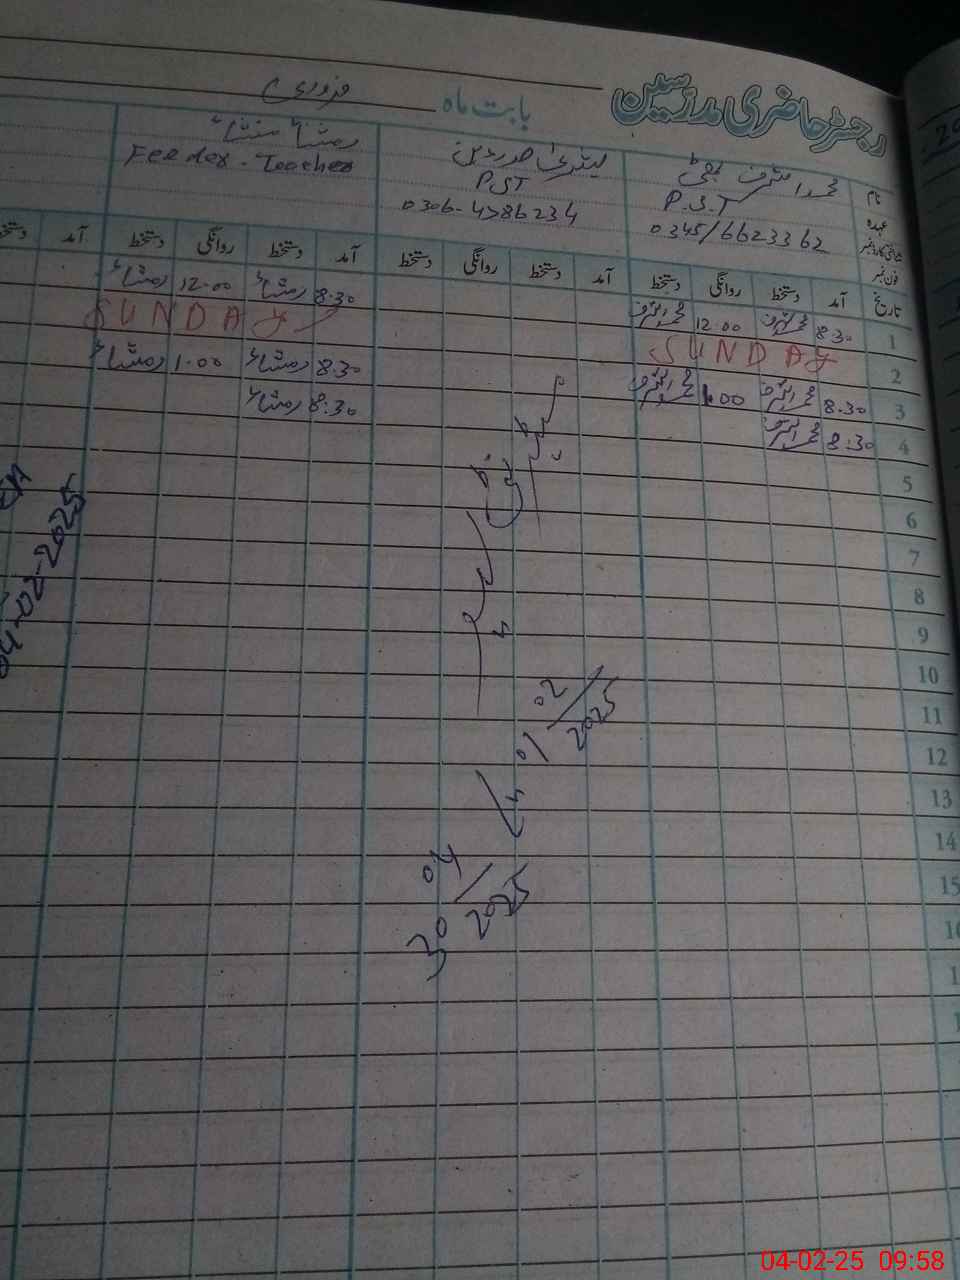 رجسٹر حاضری مدرسین
بابت ماہ فروری
نام محمد اشرف بھٹی
عہدہ P.S.T
0345/6623362
فون نمبر
PST
0306-4786234
Feeder-Teacher
تاریخ آمد دستخط روانگی دستخط آمد دستخط روانگی دستخط آمد دستخط روانگی دستخط آمد
1 8.30 محمد اشرف 12.00 محمد اشرف 8.30 رمشاء 12.00 رمشاء
2 SUNDAY SUNDAY
3 8.30 محمد اشرف 1.00 محمد اشرف 8.30 رمشاء 1.00 رمشاء
4 8:30 محمد اشرف 8.30 رمشاء
5
6
7
8
9
10
11
12
13
14
15
میٹرنٹی
لیو
01/02/2025
تا
30/04/2025
04-02-2025
04-02-25 09:58